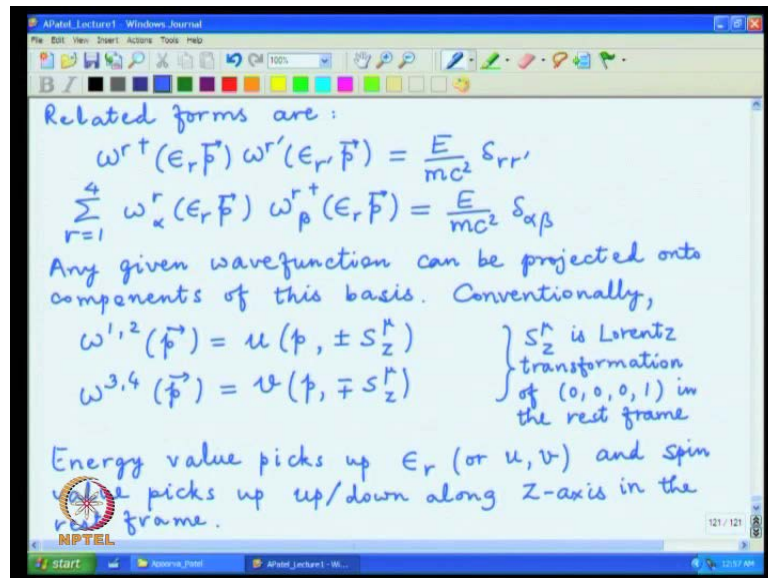 APatel_Lecture1 - Windows Journal
File Edit View Insert Actions Tools Help
100%
B I
Related forms are:
ω^{r†}(ε_r p⃗) ω^{r'}(ε_{r'} p⃗) = E/mc² δ_{rr'}
∑_{r=1}^{4} ω^r_α(ε_r p⃗) ω^{r†}_β(ε_r p⃗) = E/mc² δ_{αβ}
Any given wavefunction can be projected onto
components of this basis. Conventionally,
ω^{1,2}(p⃗) = u(p, ± S^μ_z) } S^μ_z is Lorentz
transformation
ω^{3,4}(p⃗) = v(p, ∓ S^μ_z) of (0,0,0,1) in
the rest frame
Energy value picks up ε_r (or u, v) and spin
value picks up up/down along z-axis in the
rest frame.
NPTEL
121 / 121
start Apoorva_Patel APatel_Lecture1 - Wi... 12:57 AM